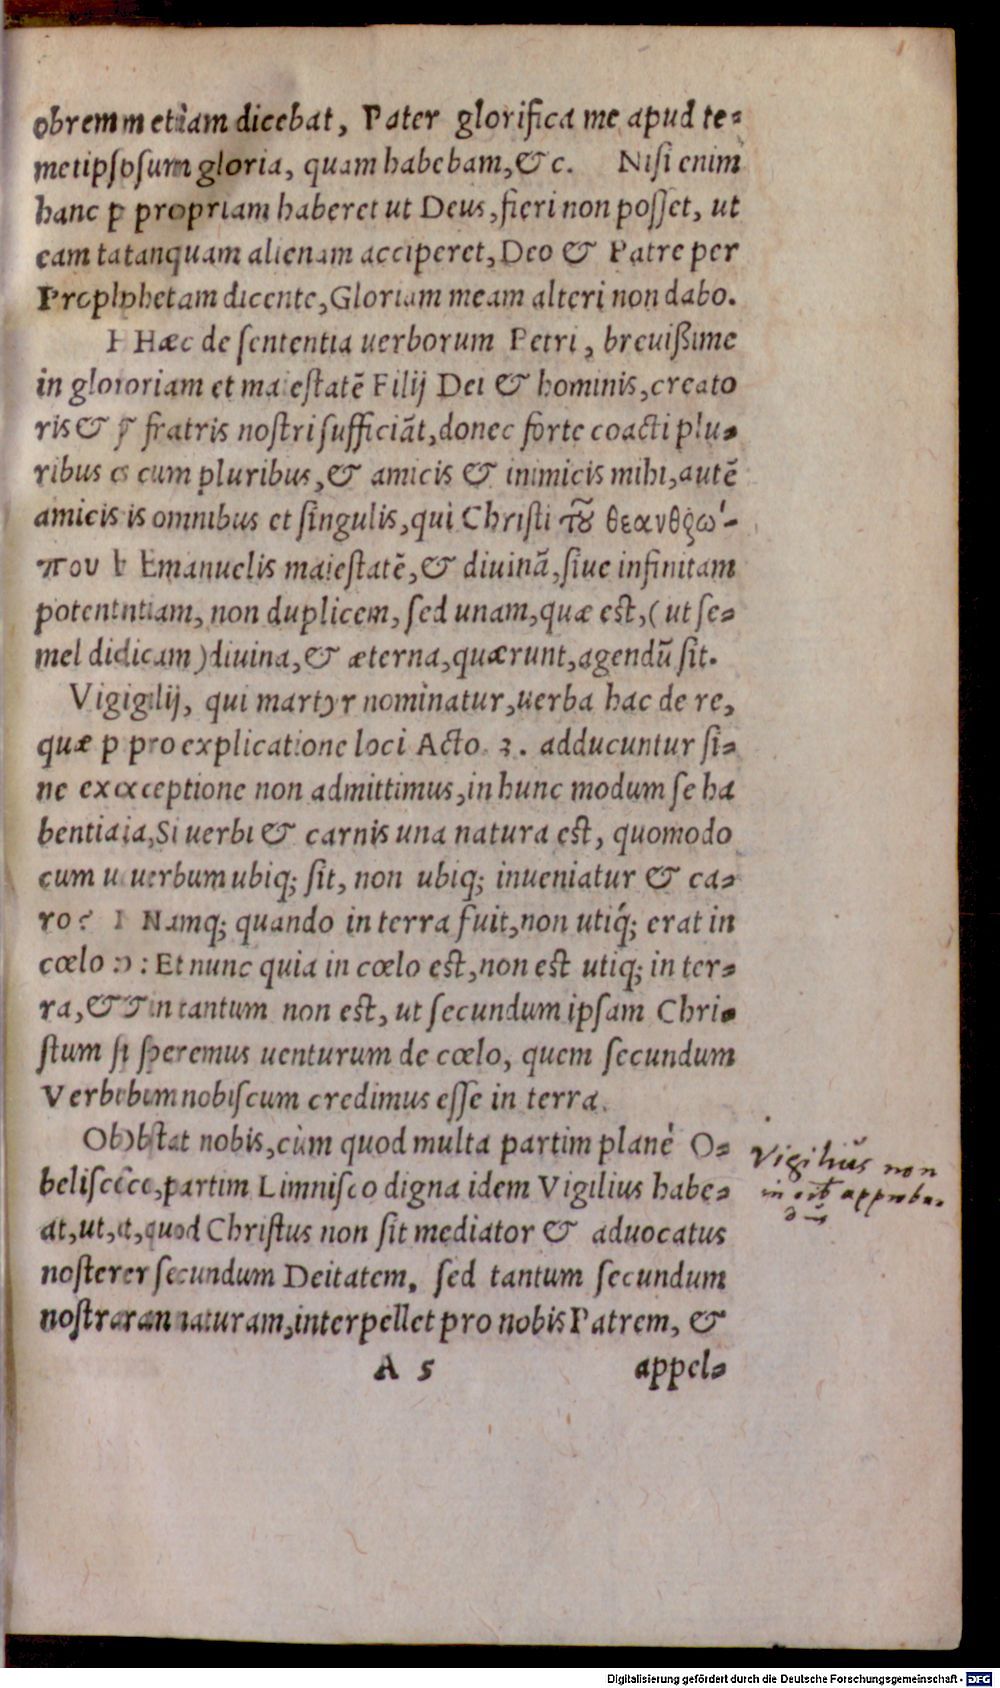 obrem etiam dicebat, Pater glorifica me apud te-
metipsum gloria, quam habebam, & c. Nisi enim
hanc propriam haberet ut Deus, fieri non posset, ut
eam tanquam alienam acciperet, Deo & Patre per
Prophetam dicente, Gloriam meam alteri non dabo.
Hæc de sententia uerborum Petri, breuißime
in gloriam et maiestatē Filij Dei & hominis, creato
ris & fratris nostri sufficiāt, donec forte coacti plu-
ribus cum pluribus, & amicis & inimicis mihi, autē
amicis omnibus et singulis, qui Christi τȣ͂ θεανθρώ-
που Emanuelis maiestatē, & diuinā, siue infinitam
potentiam, non duplicem, sed unam, quæ est, (ut se-
mel dicam) diuina, & æterna, quærunt, agendū sit.
Vigilij, qui martyr nominatur, uerba hac de re,
quæ pro explicatione loci Acto. 3. adducuntur si-
ne exceptione non admittimus, in hunc modum se ha
bentia, Si uerbi & carnis una natura est, quomodo
cum uerbum ubiq; sit, non ubiq; inueniatur & ca-
ro? Namq; quando in terra fuit, non utiq́; erat in
cœlo: Et nunc quia in cœlo est, non est utiq; in ter-
ra, & in tantum non est, ut secundum ipsam Chri-
stum speremus uenturum de cœlo, quem secundum
Verbum nobiscum credimus esse in terra.
Obstat nobis, cùm quod multa partim planè O-
belisco, partim Limnisco digna idem Vigilius habe-
at, ut, quod Christus non sit mediator & aduocatus
noster secundum Deitatem, sed tantum secundum
nostram naturam, interpellet pro nobis Patrem, &
A 5 appel-
Vigiliūs non
approba-
Digitalisierung gefördert durch die Deutsche Forschungsgemeinschaft - DFG